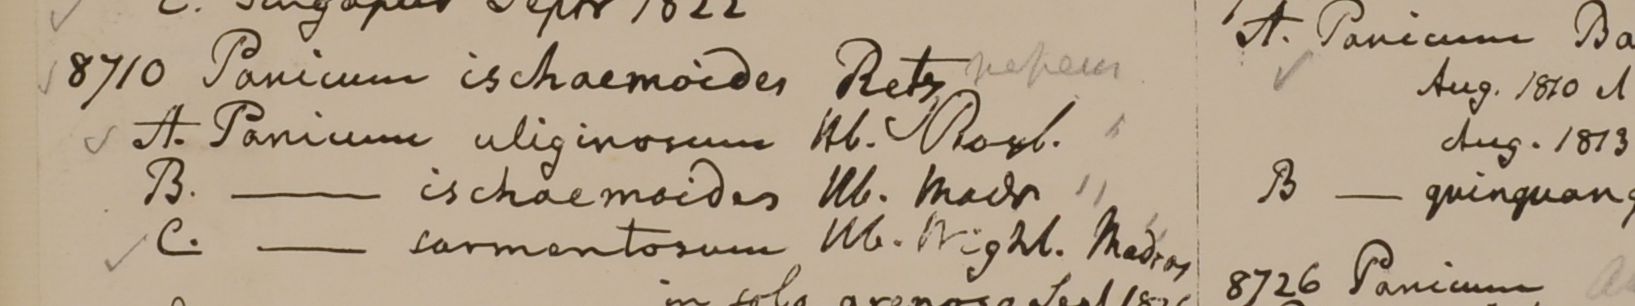 C. Singapur Septr 1822
8710 Panicum ischaemoides Retz repens
A. Panicum uliginosum Hb. Roxb. "
B. —— ischaemoides Hb. Madr "
C. —— sarmentosum Hb. Wight. Madras
in solo arenoso Sept 182
A. Panicum Ba
Aug. 1810
Aug. 1813
B — quinquang
8726 Panicum